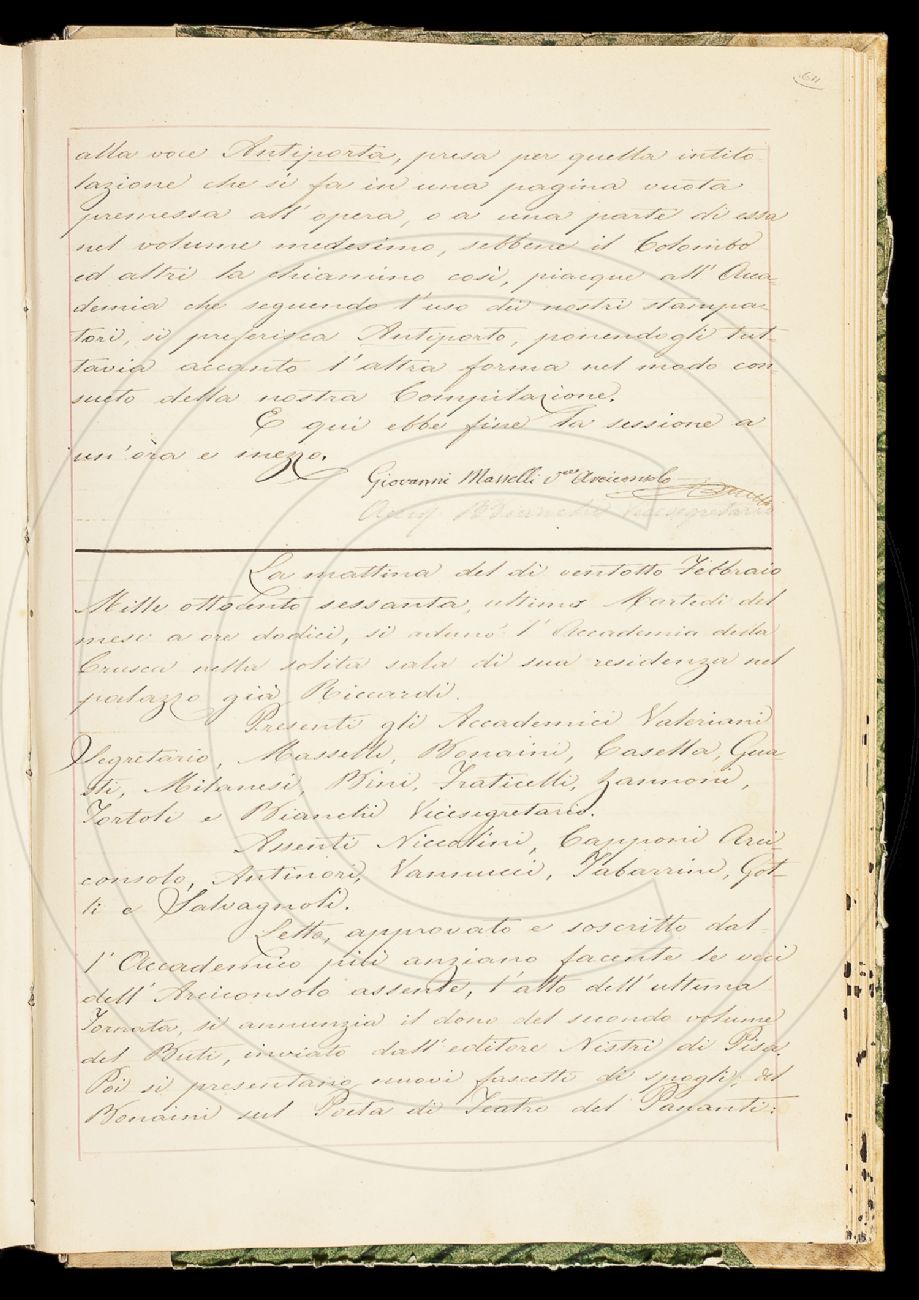 64
alla voce Antiporta, presa per quella intito-
lazione che si fa in una pagina vuota
premessa all' opera, o a una parte di essa
nel volume medesimo, sebbene il Colombo
ed altri la chiamino così, piacque all' Acca-
demia che seguendo l' uso dei nostri stampa-
tori, si preferisca Antiporto, ponendogli tut-
tavia accanto l' altra forma nel modo con-
sueto della nostra Compilazione.
E qui ebbe fine la sessione a
un' ora e mezzo.
Giovanni Masselli Arciconsolo
Bianchi Vicesegretario
La mattina del dì ventotto Febbraio
Mille ottocento sessanta, ultimo Martedì del
mese a ore dodici, si adunò l' Accademia della
Crusca nella solita sala di sua residenza nel
palazzo già Riccardi.
Presenti gli Accademici Valeriani
Segretario, Masselli, Bonaini, Casella, Gua-
sti, Milanesi, Bini, Fraticelli, Zannoni,
Tortoli e Bianchi Vicesegretario.
Assenti Niccolini, Capponi Arci-
consolo, Antinori, Vannucci, Tabarrini, Got-
ti e Salvagnoli.
Letto, approvato e soscritto dal-
l' Accademico più anziano facente le veci
dell' Arciconsolo assente, l' atto dell' ultima
Tornata, si annunzia il dono del secondo volume
del Buti, inviato dall' editore Nistri di Pisa.
Poi si presentano nuovi fascetti di spogli, del
Bonaini sul Poeta di Teatro del Pananti: